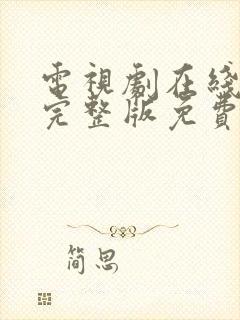 電視劇在綫
完整版免費
简思